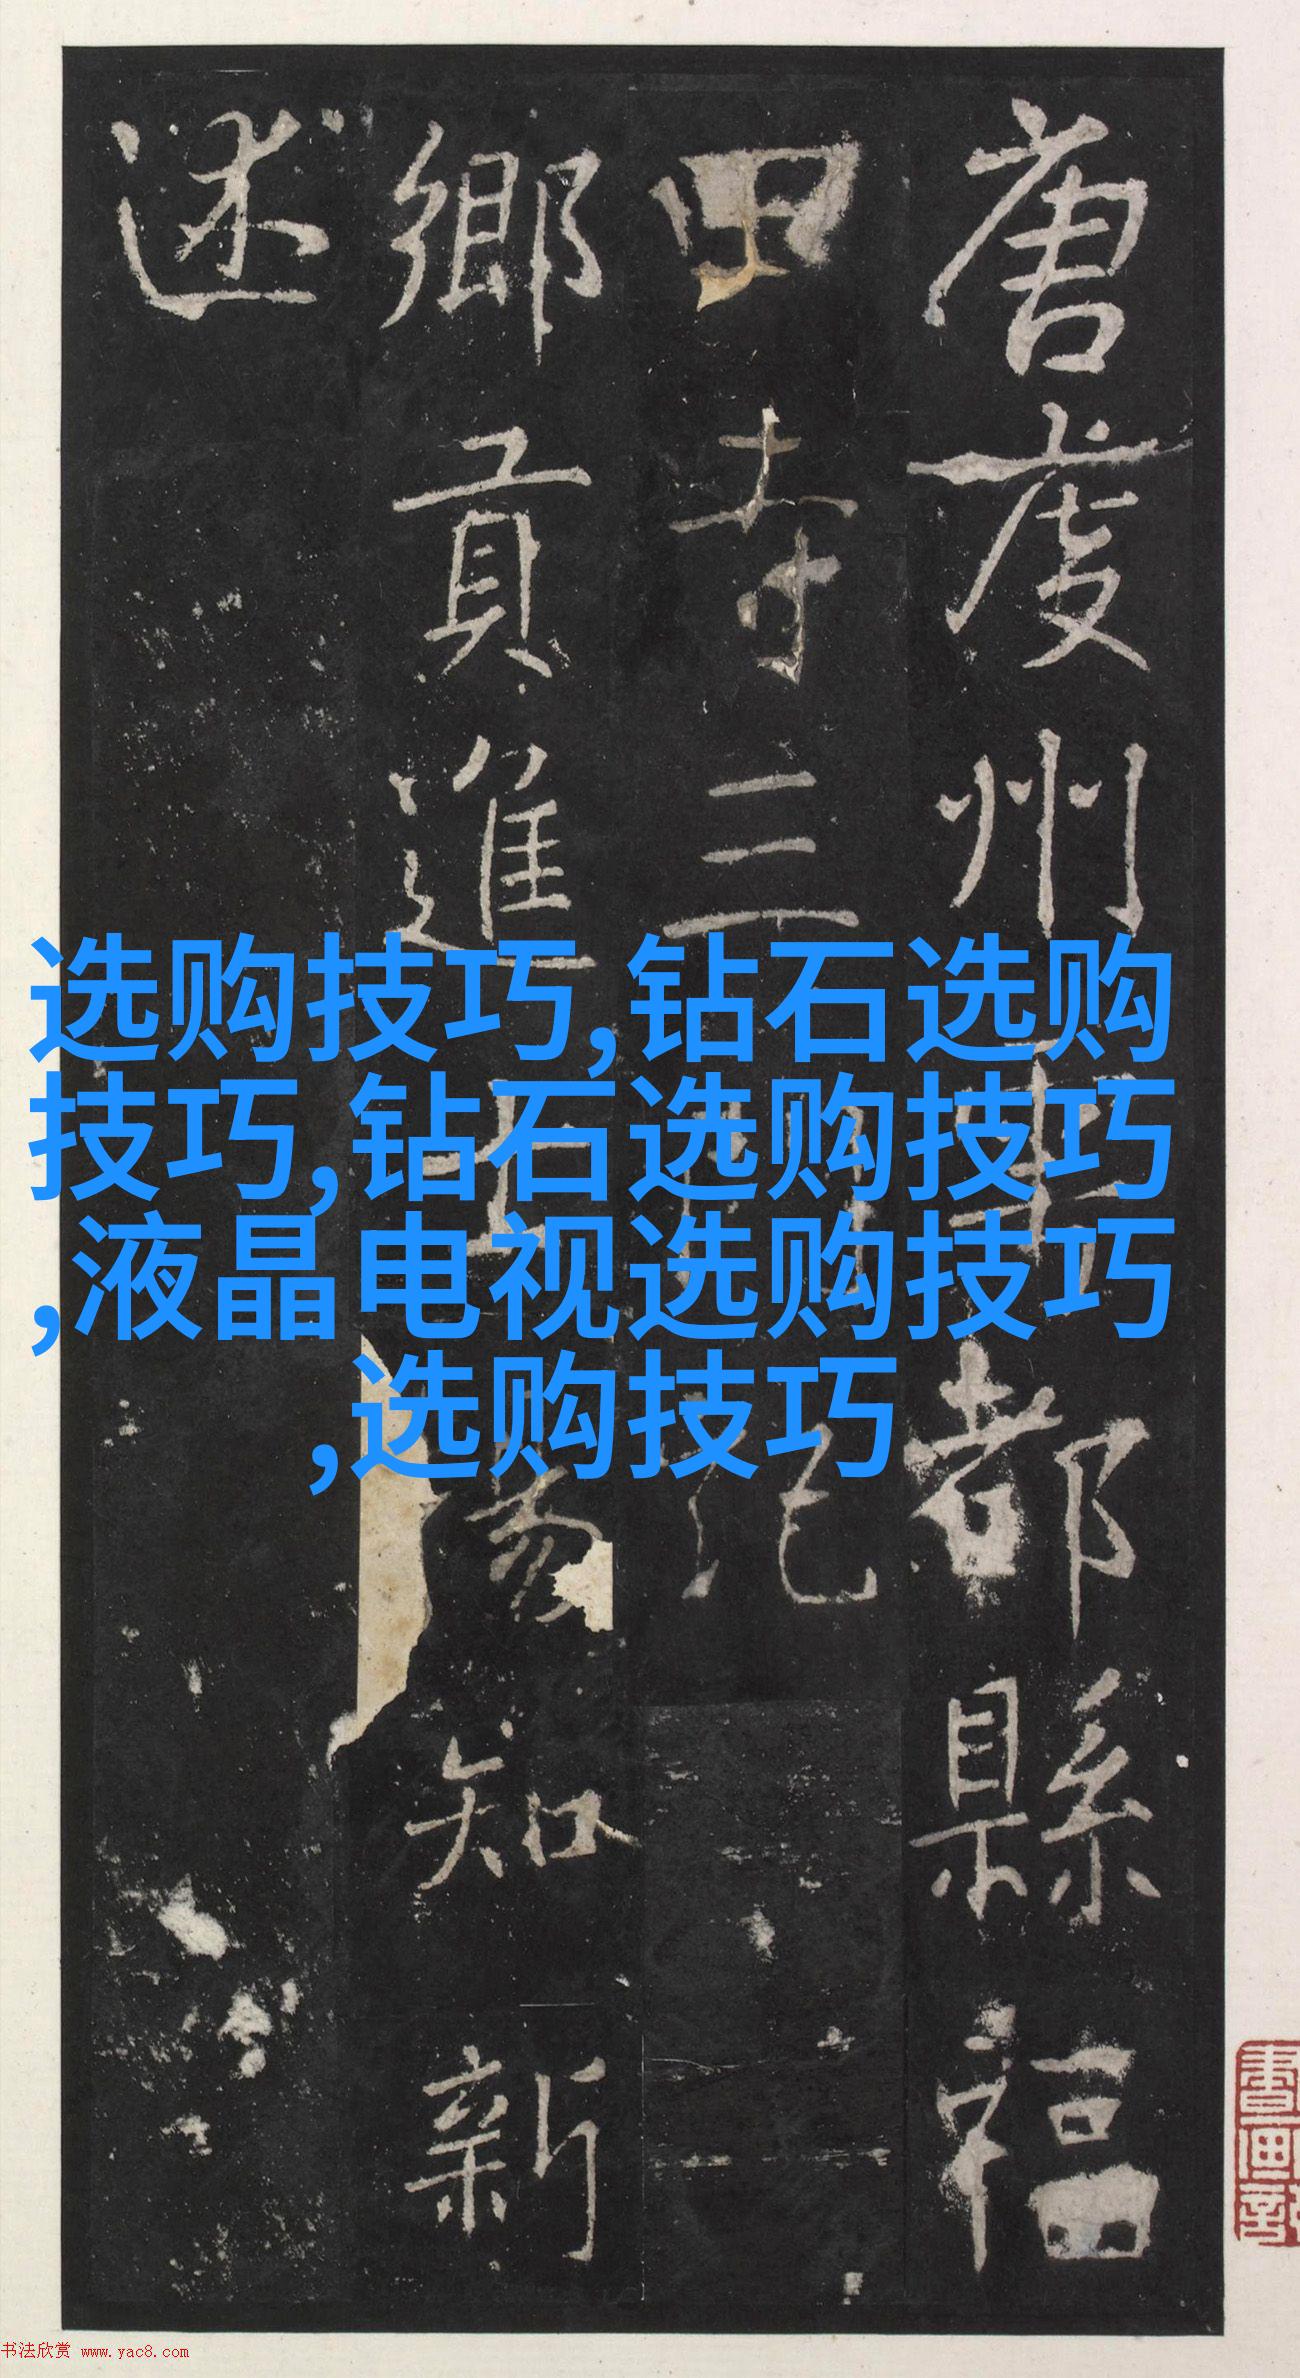 唐虔州都縣福
田寺三記
鄉貢進士知新
述
选购技巧,钻石选购
技巧,钻石选购技巧
,液晶电视选购技巧
,选购技巧
书法欣赏 www.yac8.com